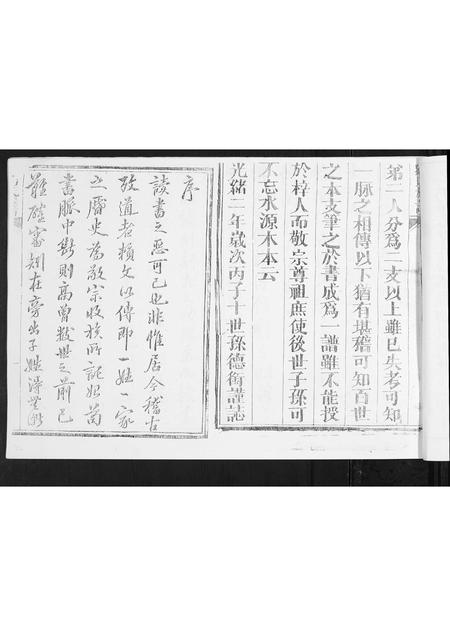 第二人分爲二支以上雖已失考可知
一脉之相傳以下猶有堪稽可知百世
之本支筆之於書成爲一譜雖不能授
於梓人而敬宗尊祖庶使後世子孫可
不忘水源木本云
光緒二年歲次丙子十世孫德銜謹誌
序
譜書之惡可已也非惟居今稽古
攷道者賴文以傳即一姓一家
之曆史爲敬宗收族所託始苟
書脈中斷則高曾數世之前已
難確審矧在旁出子姓